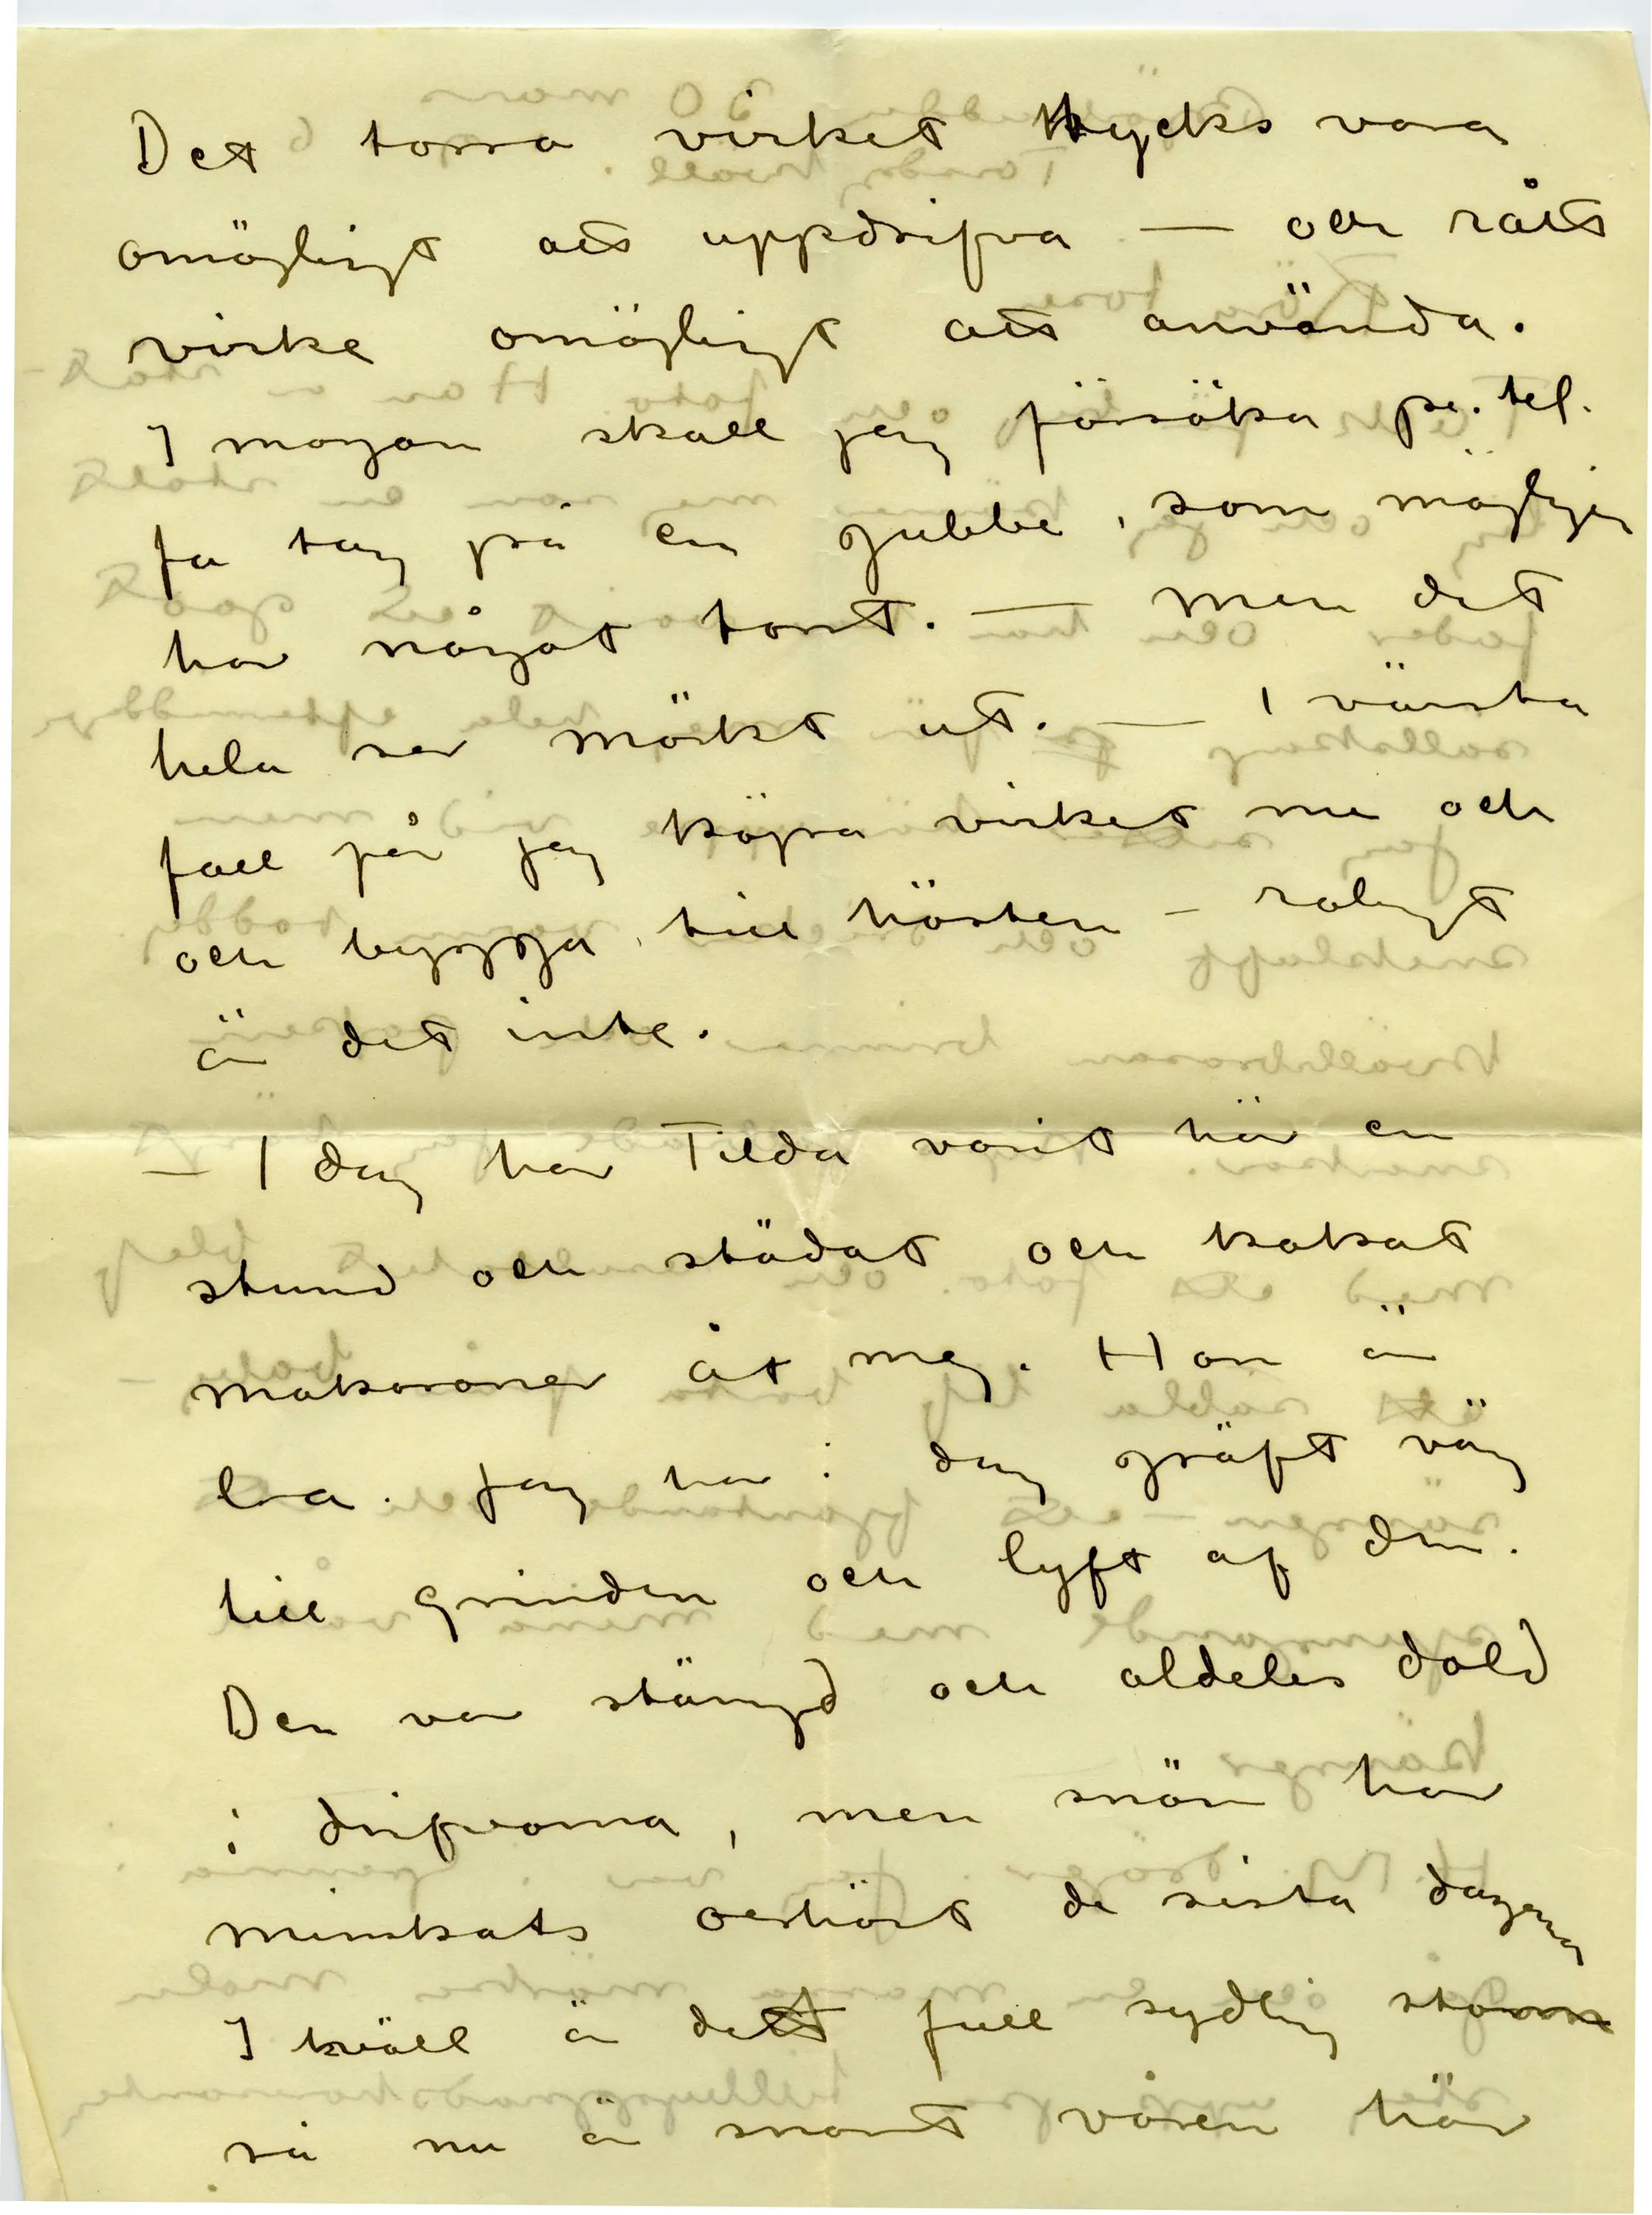 Det torra virket tycks vara
omöjligt att uppdrifva — och rått
virke omöjligt att använda.
I morgon skall jag försöka pr. tel.
få tag på en gubbe, som möjligen
har något torrt. — men det
hela ser mörkt ut. — I värsta
fall får jag köpa virket nu och
och bygga till hösten — roligt
är det inte.
— I dag har Tilda varit här en
stund och städat och kokat
makaroner åt mig. Hon är
bra. Jag har i dag gräft väg
till grinden och lyft af den.
Den var stängd och aldeles dold
i drifvorna, men snön har
minskats oerhört de sista dagarna
I kväll är det full sydlig storm
så nu är snart våren här